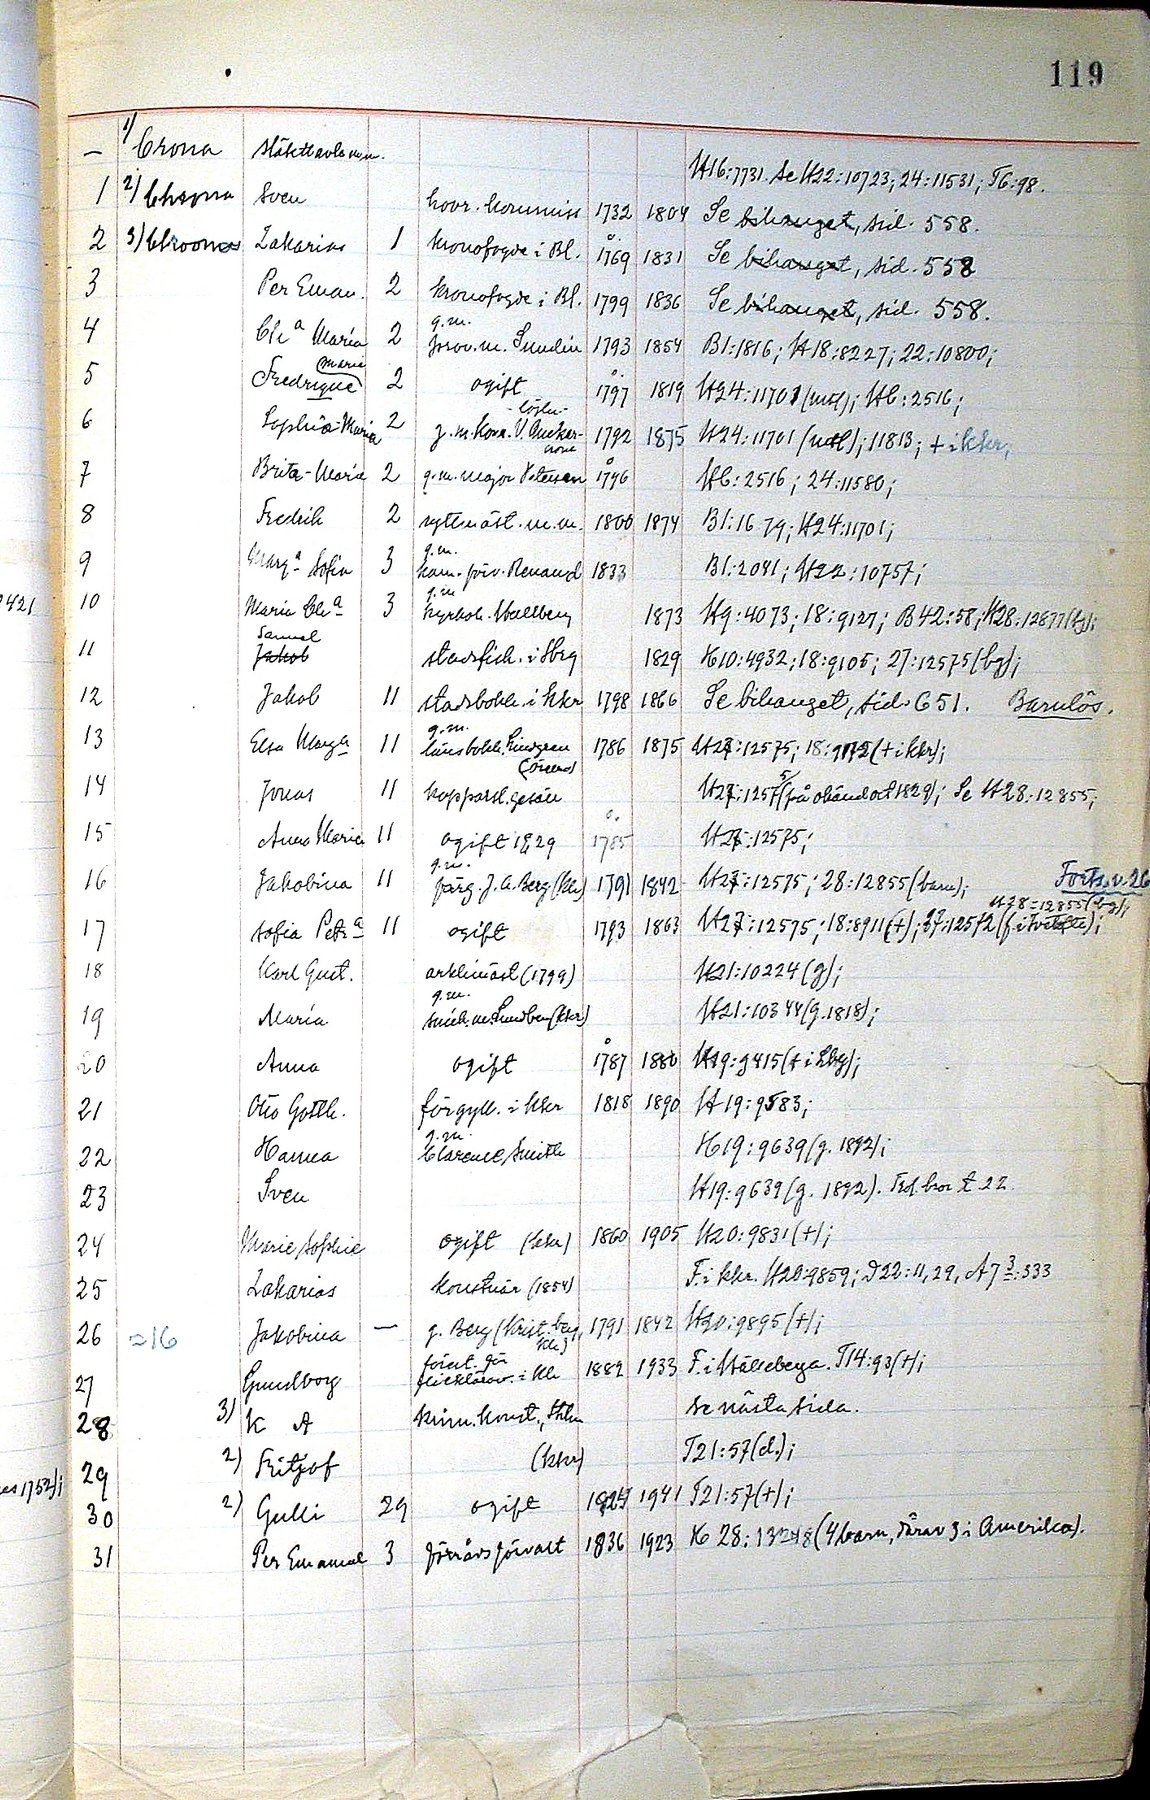 119
— 1) Crona
H16:7731. Se H22:10723; 24:11531; T6:98.
1 2) Chrona Sven kovr. kommiss 1732 1804 Se bihanget, sid. 558.
2 3) Chroona Zakarias 1 kronofogde i Bl. 1769 1831 Se bihanget, sid. 558
3 Per Eman. 2 kronofogde i Bl. 1799 1836 Se bihanget, sid. 558.
g.m.
4 Chª Maria 2 prov.m. Sundin 1793 1854 B1:1816; H18:8227; 22:10800;
Marie
5 Fredrique 2 ogift 1797 1819 H24:11701 (mtl); H6:2516;
6 Sophia-Maria 2 g.m. kom. V. Ancker- 1792 1875 H24:11701 (mtl); 11813; + i kkr;
crona
7 Brita-Maria 2 g.m. major Petersen 1796 H6:2516; 24:11580;
8 Fredrik 2 rytmäst. m.m. 1800 1874 B1:1679; H24:11701;
g.m.
9 Margª Sofia 3 kam. förv. Renaud 1833 B1:2041; H22:10757;
g.m
10 Maria Chª 3 kyrkoh. Wallberg 1873 H9:4073; 18:9127; B42:58; H28:12877(bg);
2421
Samuel
11 Jakob stadsfisk. i Sbrg 1829 H10:4932; 18:9105; 27:12575(bg);
12 Jakob 11 stadsbokh. i kkr 1798 1866 Se bihanget, sid. 651. Barnlös.
g.m.
13 Elsa Margª 11 länsbokh. Lindgren 1786 1875 H27:12575; 18:9172 (+ i kkr);
14 Jonas 11 kopparsl. gesäll H27:12575 (på okänd ort 1829); Se H28:12855;
15 Anna Maria 11 ogift 1829 1785 H27:12575;
g.m.
16 Jakobina 11 färg. J.A. Berg (kh) 1791 1842 H27:12575; 28:12855 (barn); Forts. n. 26
H28:12855 (bg);
17 Sofia Petrª 11 ogift 1793 1863 H27:12575; 18:8911 (+); 27:12572
18 Karl Gust. arklimäst (1799) H21:10224 (g);
g.m.
19 Maria snick. m. Lundberg (kkr) H21:10344 (g. 1818);
20 Anna ogift 1787 1880 H19:9415 (+ i Lbg);
21 Otto Gottl. förgyll. i kkr 1818 1890 H19:9583;
g.m.
22 Hanna Clarence Smith H19:9639 (g. 1892);
23 Sven H19:9639 (g. 1892). Trol. bror t. 22
24 Marie Sophie ogift (kkr) 1860 1905 H20:9831 (+);
25 Zakarias konstnär (1854) F. i kkr. H20:9859; D22:11, 29, A7 3:333
26 = 16 Jakobina — g. Berg (Krist. berg, 1791 1842 H20:9895 (+);
kh)
27 Gundborg 1882 1933 F. i Hällseberga. T14:93 (+);
28 3) K A Sthlm se nästa sida.
29 2) Fritjof (kkr) T21:57 (d.);
es 1752);
30 2) Gulli 29 ogift 1941 T21:57 (+);
31 Per Emanuel 3 förrådsförvalt 1836 1923 H28:13218 (4 barn, därav 3 i Amerika).